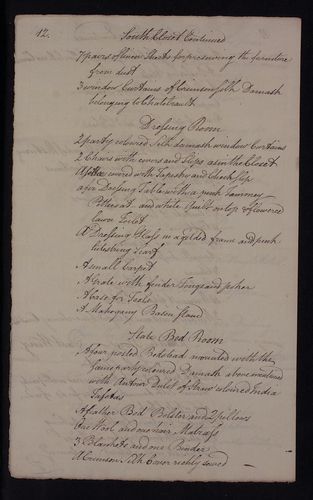 12. South Closet Continued
7 pairs of linen Shirts for preserving the furniture
from dust
3 window Curtains of Crimson silk Damask
belonging to
Dressing Room
2 party coloured Silk damask window Curtains
2 Chairs with covers and Slips as in the Closet
A covered with Tapestry and Check slip
a fir Dressing Table with a pink Tammey
Petticoat and white Quilt on top & flowered
lawn Toilet
A Dressing Glass in a gilded frame and pink
Scarf
A small Carpet
A Grate with fender Tongs and poker
A Case for
A Mahogany Bason stand
State Bed Room
A four posted Bedstead mounted with the
same party coloured Damask above mentioned
with an Quilt of Straw coloured India
A feather Bed Bolster and 2 pillows
One Wool and one hair Matrass
3 Blankets and one Binder
A Crimson Silk Cover richly sewed